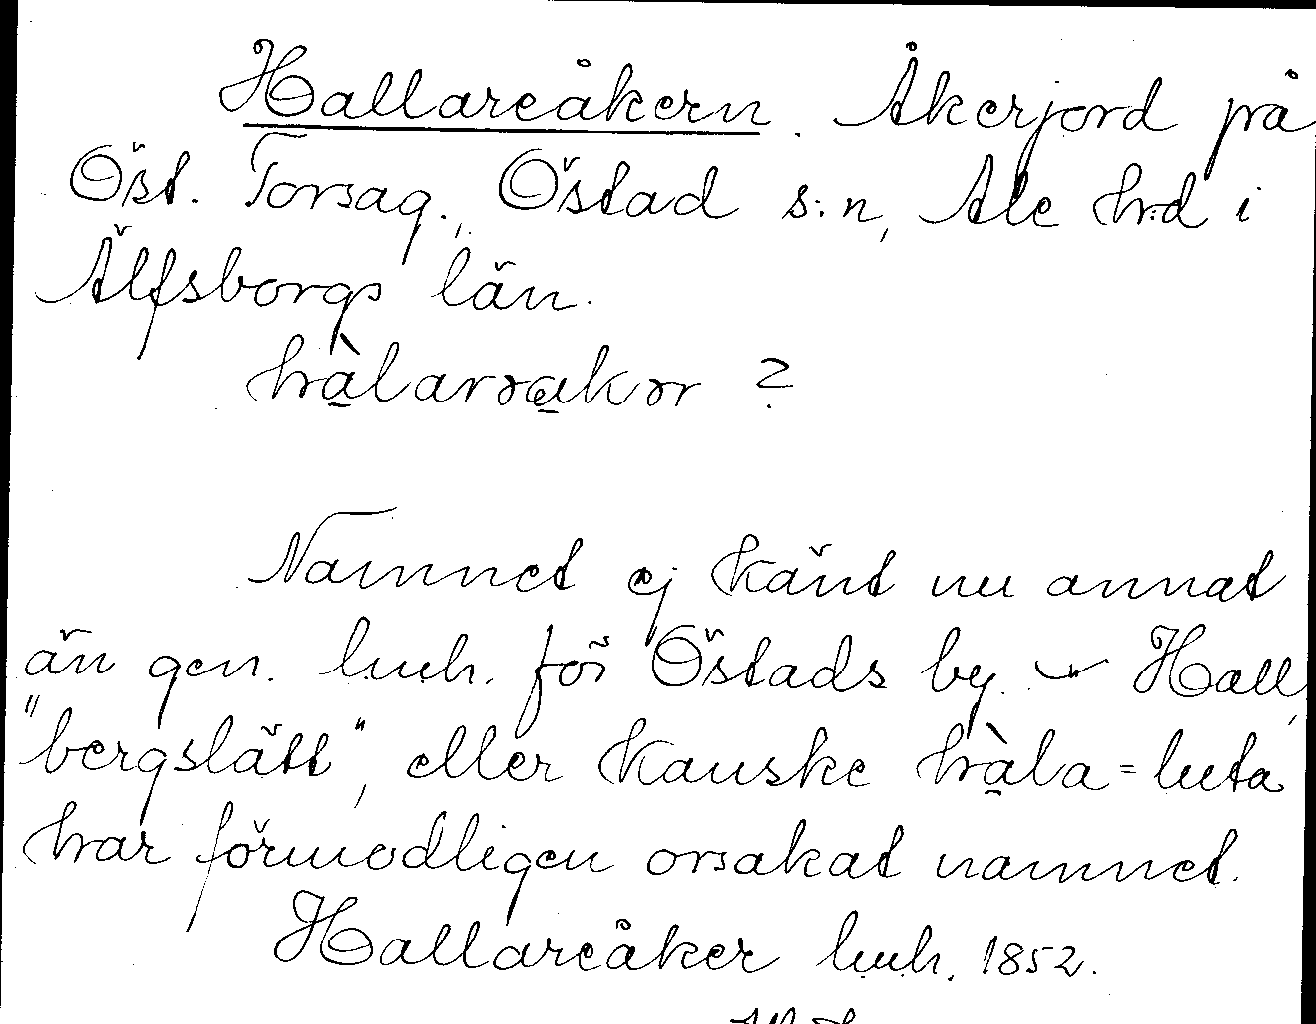 Hallareåkern. Åkerjord på
Öst. Torsag., Östad s:n, Ale h:d i
Älfsborgs län.
hàlarɤakɤr ?
Namnet ej känt nu annat
än gen. l.u.h. för Östads by. Hall
"bergslätt", eller kanske hàla = luta
har förmodligen orsakat namnet.
Hallareåker l.u.h. 1852.